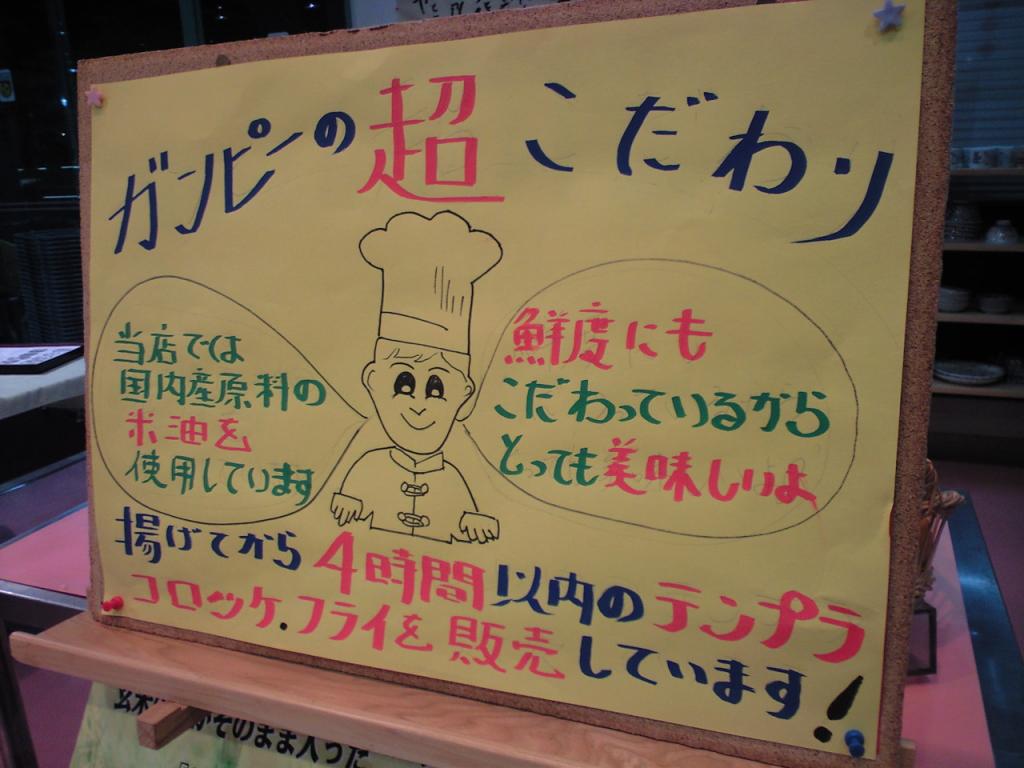 ガンピーの超こだわり
当店では
国内産原料の
米油を
使用しています
鮮度にも
こだわっているから
とっても美味しいよ
揚げてから4時間以内のテンプラ
コロッケ.フライを販売しています!
がそのまま入った